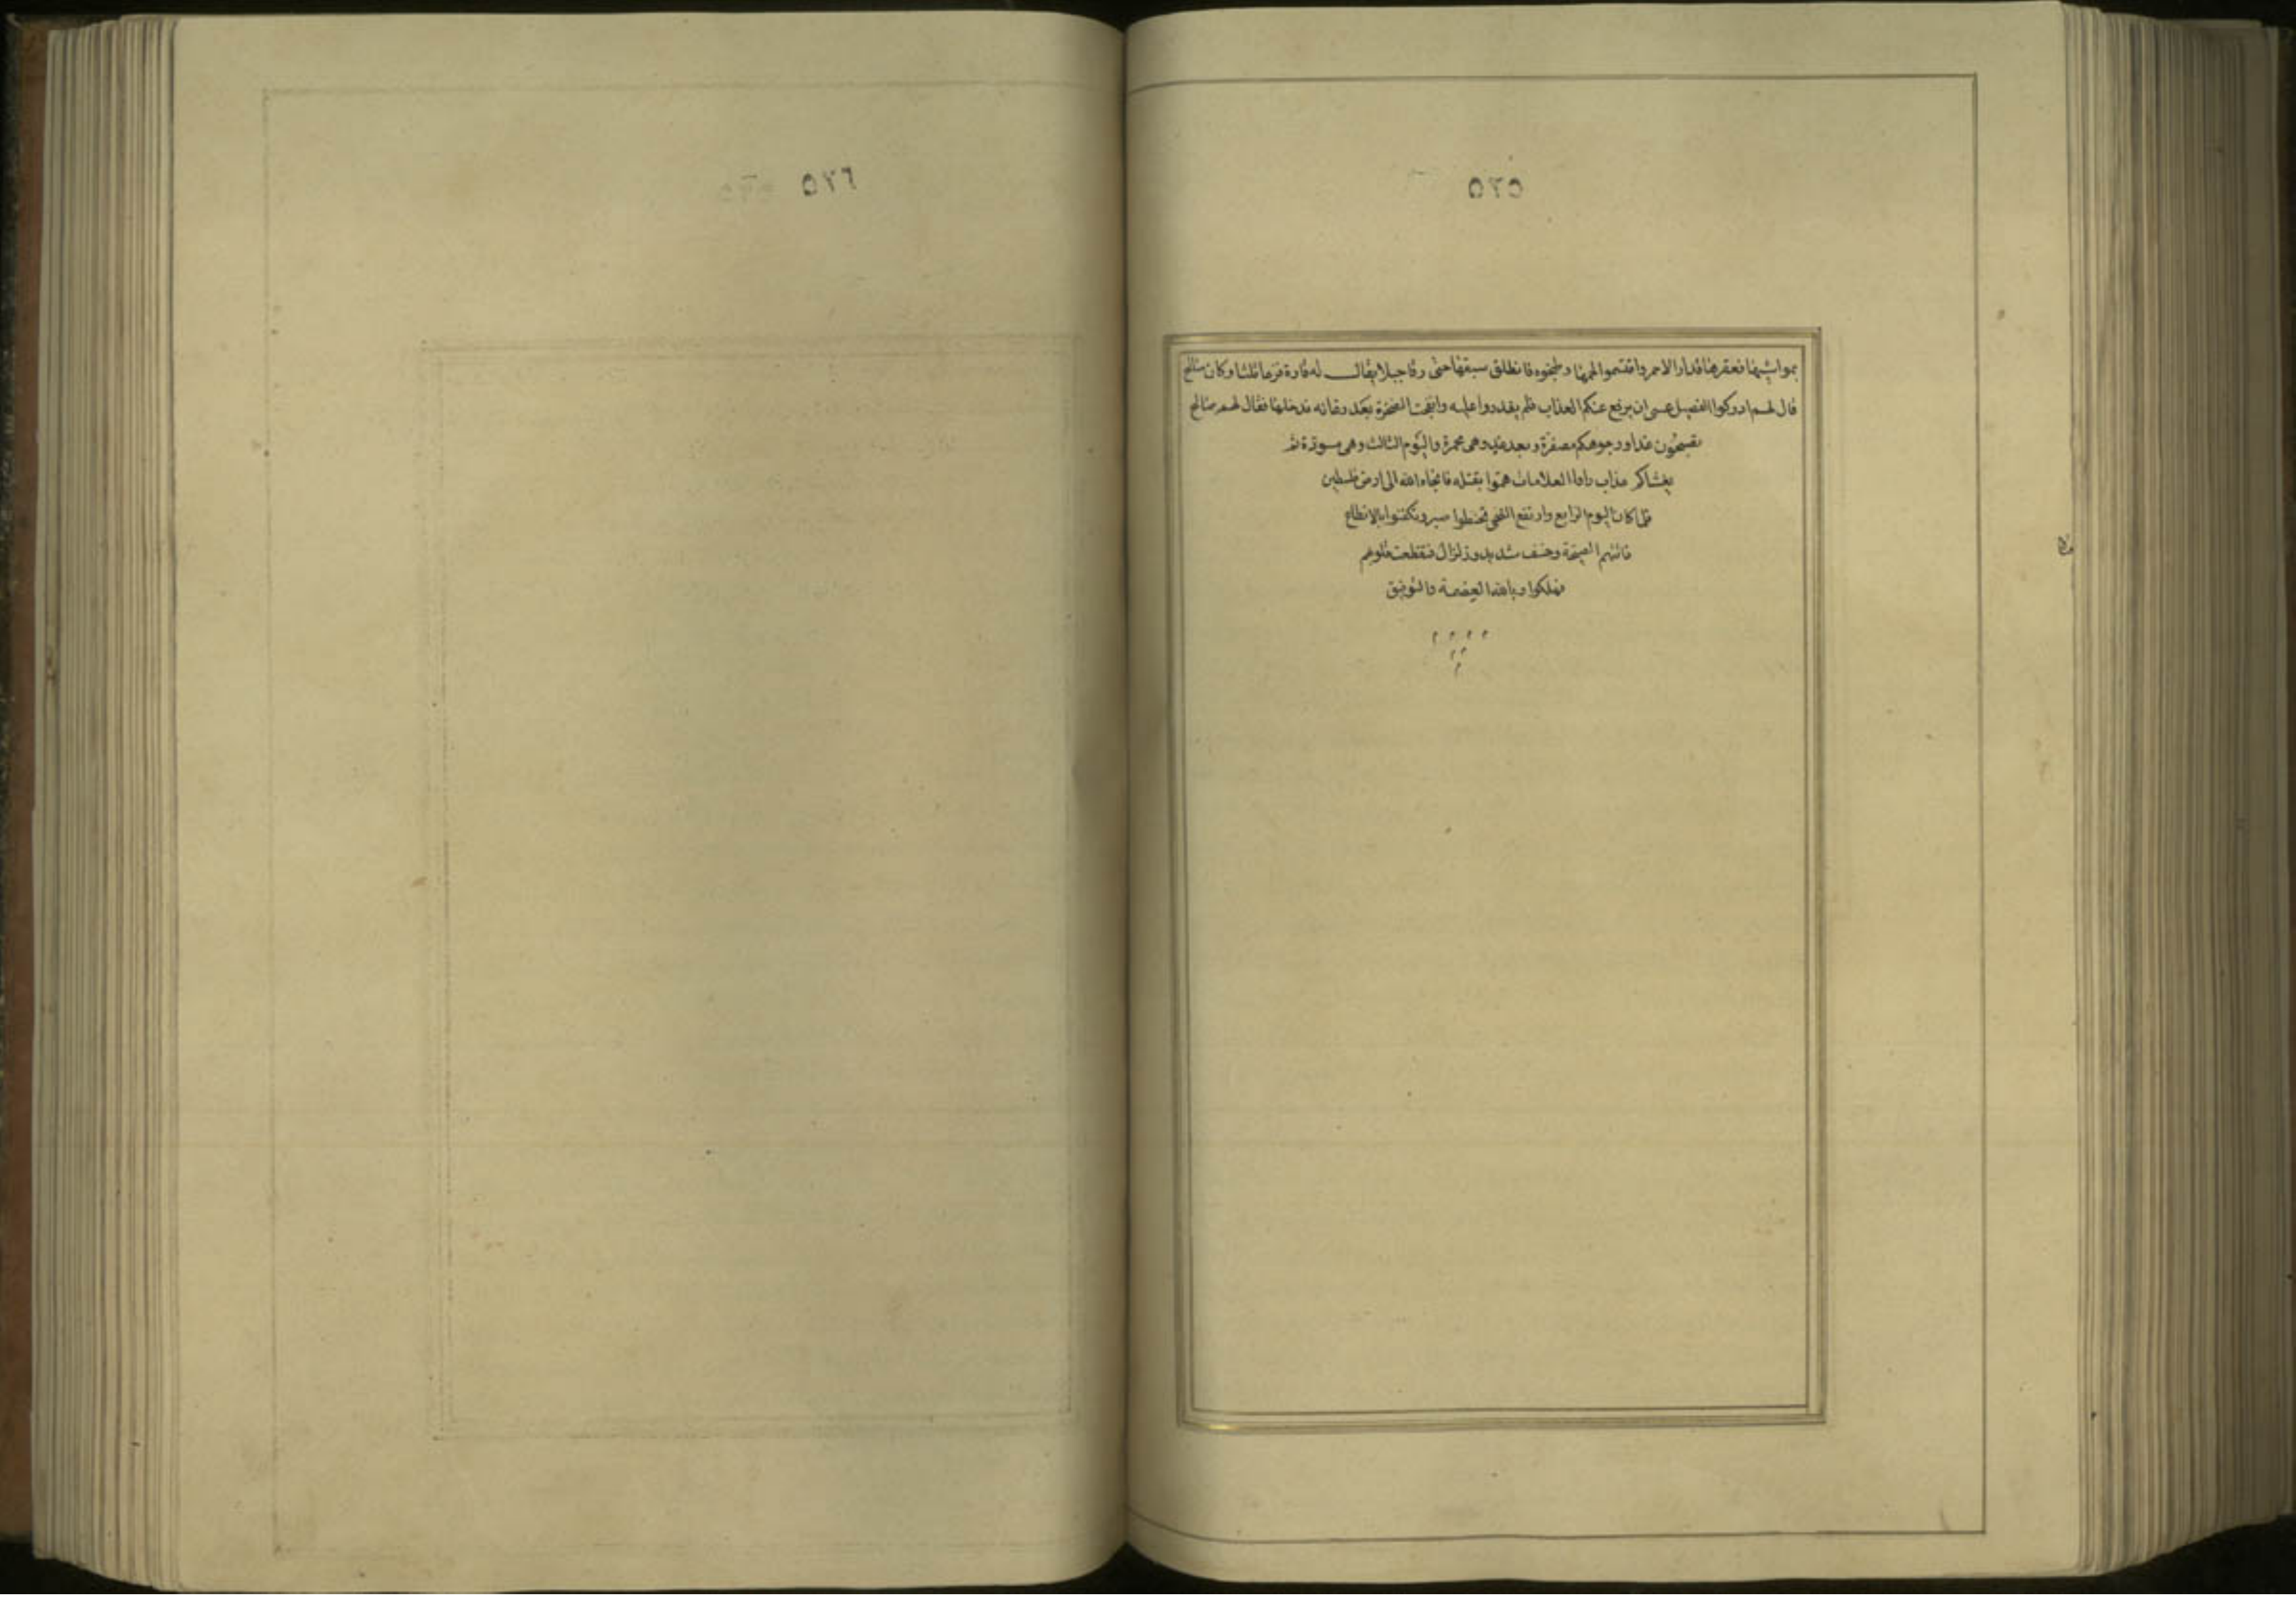 ٥٢٥
بمواشيهما فعقرها قدار الاحمر واقتسموا لحمها وطبخوه فانطلق سبقها حتى رقا جبلا يقال له قارة فرغا ثلثا وكان صالح
قال لهم ادركوا الفصيل عسى ان يرفع عنكم العذاب فلم يقدروا عليه وانفجت الصخرة بعد رغائه فدخلها فقال لهم صالح
تصبحون غدا ووجوهكم مصفرة وبعد غد وهى محمرة واليوم الثالث وهى مسودة ثم
يغشاكم عذاب راوا العلامات هموا بقتله فانجاه الله الى ارض فلسطين
فلما كان اليوم الرابع وارتفع الضحى تحنطوا صبر وتكفنوا بالانطاع
فاتتهم الصيحة وخسف شديد وزلزال فتقطعت قلوبهم
فهلكوا وبالله العصمة والتوفيق
م م م م
م م
م
٥٢٦